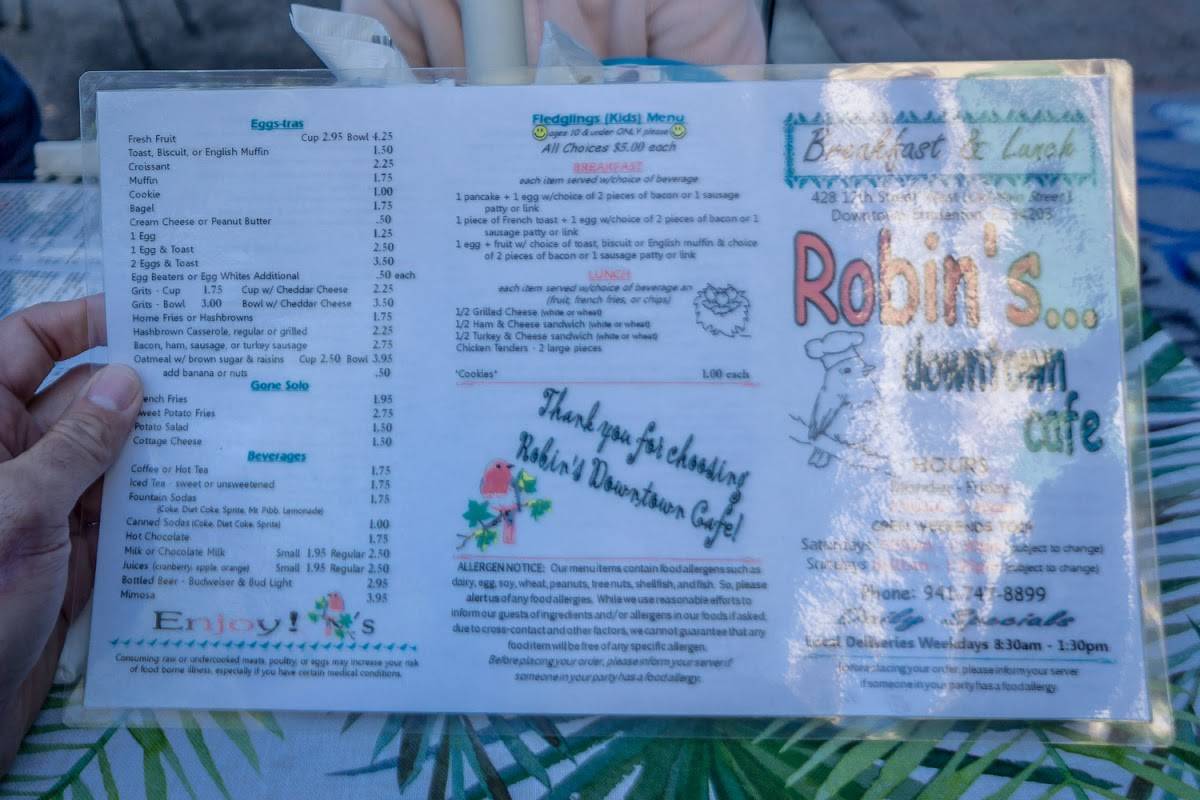 Eggs-tras
Fresh Fruit Cup 2.95 Bowl 4.25
Toast, Biscuit, or English Muffin 1.50
Croissant 2.25
Muffin 1.75
Cookie 1.00
Bagel 1.75
Cream Cheese or Peanut Butter .50
1 Egg 1.25
1 Egg & Toast 2.50
2 Eggs & Toast 3.50
Egg Beaters or Egg Whites Additional .50 each
Grits - Cup 1.75 Cup w/ Cheddar Cheese 2.25
Grits - Bowl 3.00 Bowl w/ Cheddar Cheese 3.50
Home Fries or Hashbrowns 1.75
Hashbrown Casserole, regular or grilled 2.25
Bacon, ham, sausage, or turkey sausage 2.75
Oatmeal w/ brown sugar & raisins Cup 2.50 Bowl 3.95
add banana or nuts .50
Gone Solo
ench Fries 1.95
weet Potato Fries 2.75
Potato Salad 1.50
Cottage Cheese 1.50
Beverages
Coffee or Hot Tea 1.75
Iced Tea - sweet or unsweetened 1.75
Fountain Sodas 1.75
(Coke, Diet Coke, Sprite, Mr. Pibb, Lemonade)
Canned Sodas (Coke, Diet Coke, Sprite) 1.00
Hot Chocolate 1.75
Milk or Chocolate Milk Small 1.95 Regular 2.50
Juices (cranberry, apple, orange) Small 1.95 Regular 2.50
Bottled Beer - Budweiser & Bud Light 2.95
Mimosa 3.95
Enjoy! 's
Consuming raw or undercooked meats, poultry, or eggs may increase your risk
of food borne illness, especially if you have certain medical conditions.
Fledglings (Kids) Menu
ages 10 & under ONLY please
All Choices $5.00 each
BREAKFAST
each item served w/choice of beverage
1 pancake + 1 egg w/choice of 2 pieces of bacon or 1 sausage
patty or link
1 piece of French toast + 1 egg w/choice of 2 pieces of bacon or 1
sausage patty or link
1 egg + fruit w/ choice of toast, biscuit or English muffin & choice
of 2 pieces of bacon or 1 sausage patty or link
LUNCH
each item served w/choice of beverage an
(fruit, french fries, or chips)
1/2 Grilled Cheese (white or wheat)
1/2 Ham & Cheese sandwich (white or wheat)
1/2 Turkey & Cheese sandwich (white or wheat)
Chicken Tenders - 2 large pieces
*Cookies* 1.00 each
Thank you for choosing
Robin's Downtown Cafe!
ALLERGEN NOTICE: Our menu items contain food allergens such as
dairy, egg, soy, wheat, peanuts, tree nuts, shellfish, and fish. So, please
alert us of any food allergies. While we use reasonable efforts to
inform our guests of ingredients and/or allergens in our foods if asked,
due to cross-contact and other factors, we cannot guarantee that any
food item will be free of any specific allergen.
Before placing your order, please inform your server if
someone in your party has a food allergy.
Breakfast & Lunch
428 12th Street
Downtown 34205
Robin's...
downtown
cafe
HOURS
Monday - Friday
OPEN WEEKENDS TOO!
Saturdays (subject to change)
Sundays (subject to change)
Phone: 941-747-8899
Daily Specials
Local Deliveries Weekdays 8:30am - 1:30pm
Before placing your order, please inform your server
if someone in your party has a food allergy.